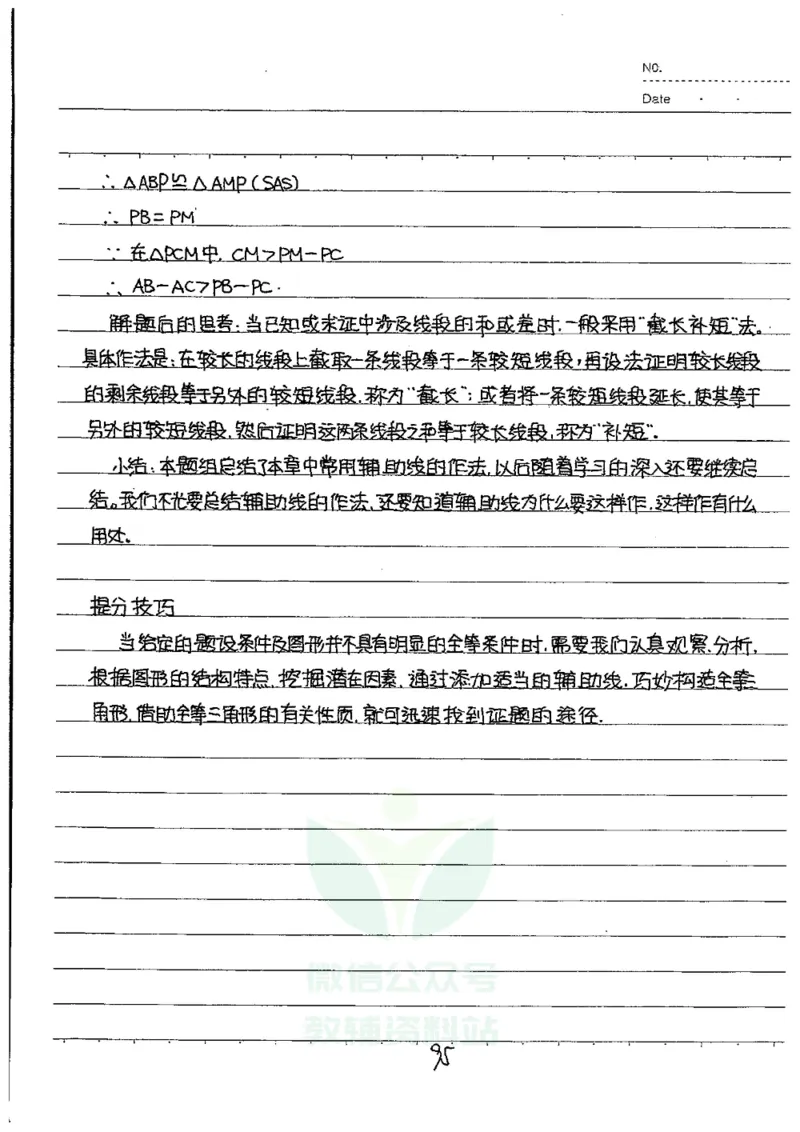 NO.
Date
∴ △ABP≌△AMP(SAS)
∴ PB=PM
∵ 在△PCM中, CM>PM-PC
∴ AB-AC>PB-PC.
解题后的思考:当已知或求证中涉及线段的和或差时,一般采用"截长补短"法。
具体作法是:在较长的线段上截取一条线段等于一条较短线段,再设法证明较长线段
的剩余线段等于另外的较短线段,称为"截长";或者将一条较短线段延长,使其等于
另外的较短线段,然后证明这两条线段之和等于较长线段,称为"补短".
小结:本题组总结了本章中常用辅助线的作法,以后随着学习的深入还要继续总
结。我们不光要总结辅助线的作法,还要知道辅助线为什么要这样作,这样作有什么
用处.
提分技巧
当给定的题设条件及图形并不具有明显的全等条件时,需要我们认真观察,分析,
根据图形的结构特点,挖掘潜在因素,通过添加适当的辅助线,巧妙构造全等三
角形,借助全等三角形的有关性质,就可迅速找到证题的途径.
微信公众号
教辅资料站
95